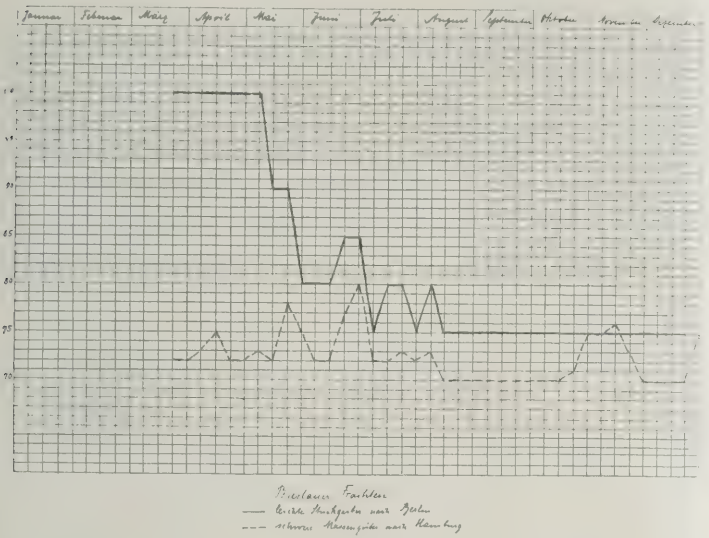 Januar Februar März April Mai Juni Juli August September Oktober November Dezember
90
85
80
75
70
Breslauer Frachten
leichte Stückgüter nach Berlin
schwere Massengüter nach Hamburg